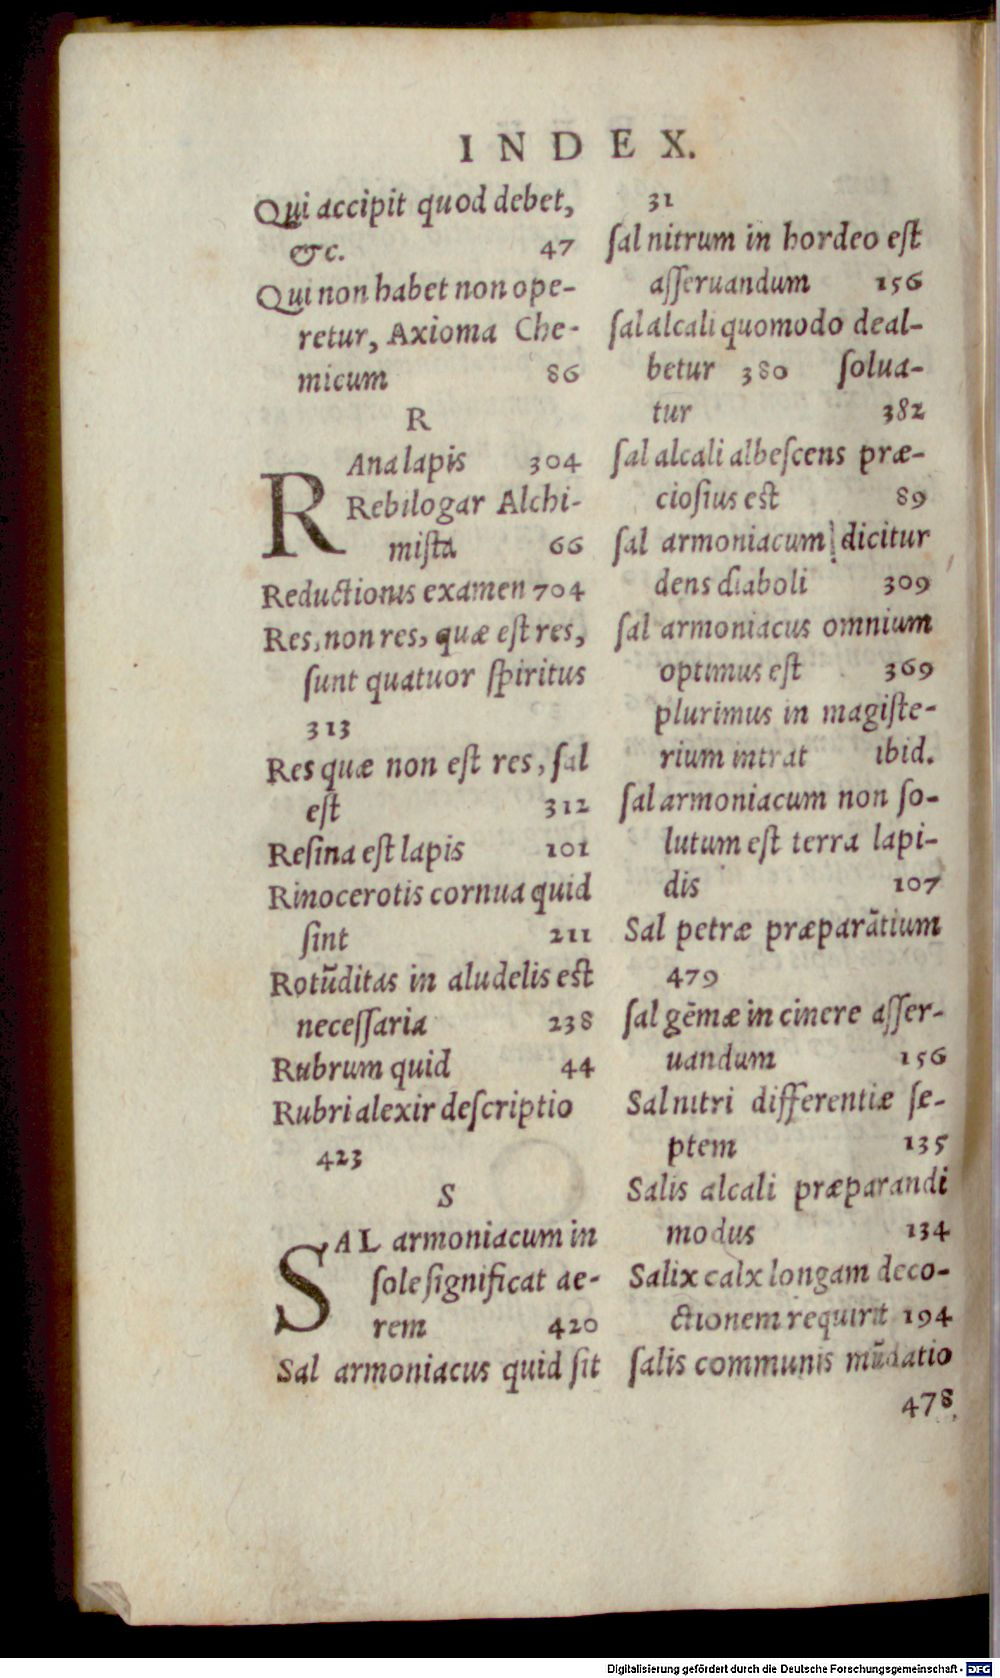 INDEX.
Qui accipit quod debet,
&c. 47
Qui non habet non ope-
retur, Axioma Che-
micum 86
R
RAna lapis 304
Rebilogar Alchi-
miſta 66
Reductionis examen 704
Res, non res, quæ eſt res,
ſunt quatuor ſpiritus
313
Res quæ non eſt res, ſal
eſt 312
Reſina eſt lapis 101
Rinocerotis cornua quid
ſint 211
Rotũditas in aludelis eſt
neceſſaria 238
Rubrum quid 44
Rubri alexir deſcriptio
423
S
SAL armoniacum in
ſole ſignificat ae-
rem 420
Sal armoniacus quid ſit
31
ſal nitrum in hordeo eſt
aſſeruandum 156
ſal alcali quomodo deal-
betur 380 ſolua-
tur 382
ſal alcali albeſcens præ-
cioſius eſt 89
ſal armoniacum dicitur
dens diaboli 309
ſal armoniacus omnium
optimus eſt 369
plurimus in magiſte-
rium intrat ibid.
ſal armoniacum non ſo-
lutum eſt terra lapi-
dis 107
Sal petræ præparãtium
479
ſal gẽmæ in cinere aſſer-
uandum 156
Sal nitri differentiæ ſe-
ptem 135
Salis alcali præparandi
modus 134
Salix calx longam deco-
ctionem requirit 194
ſalis communis mũdatio
478
Digitalisierung gefördert durch die Deutsche Forschungsgemeinschaft - DFG